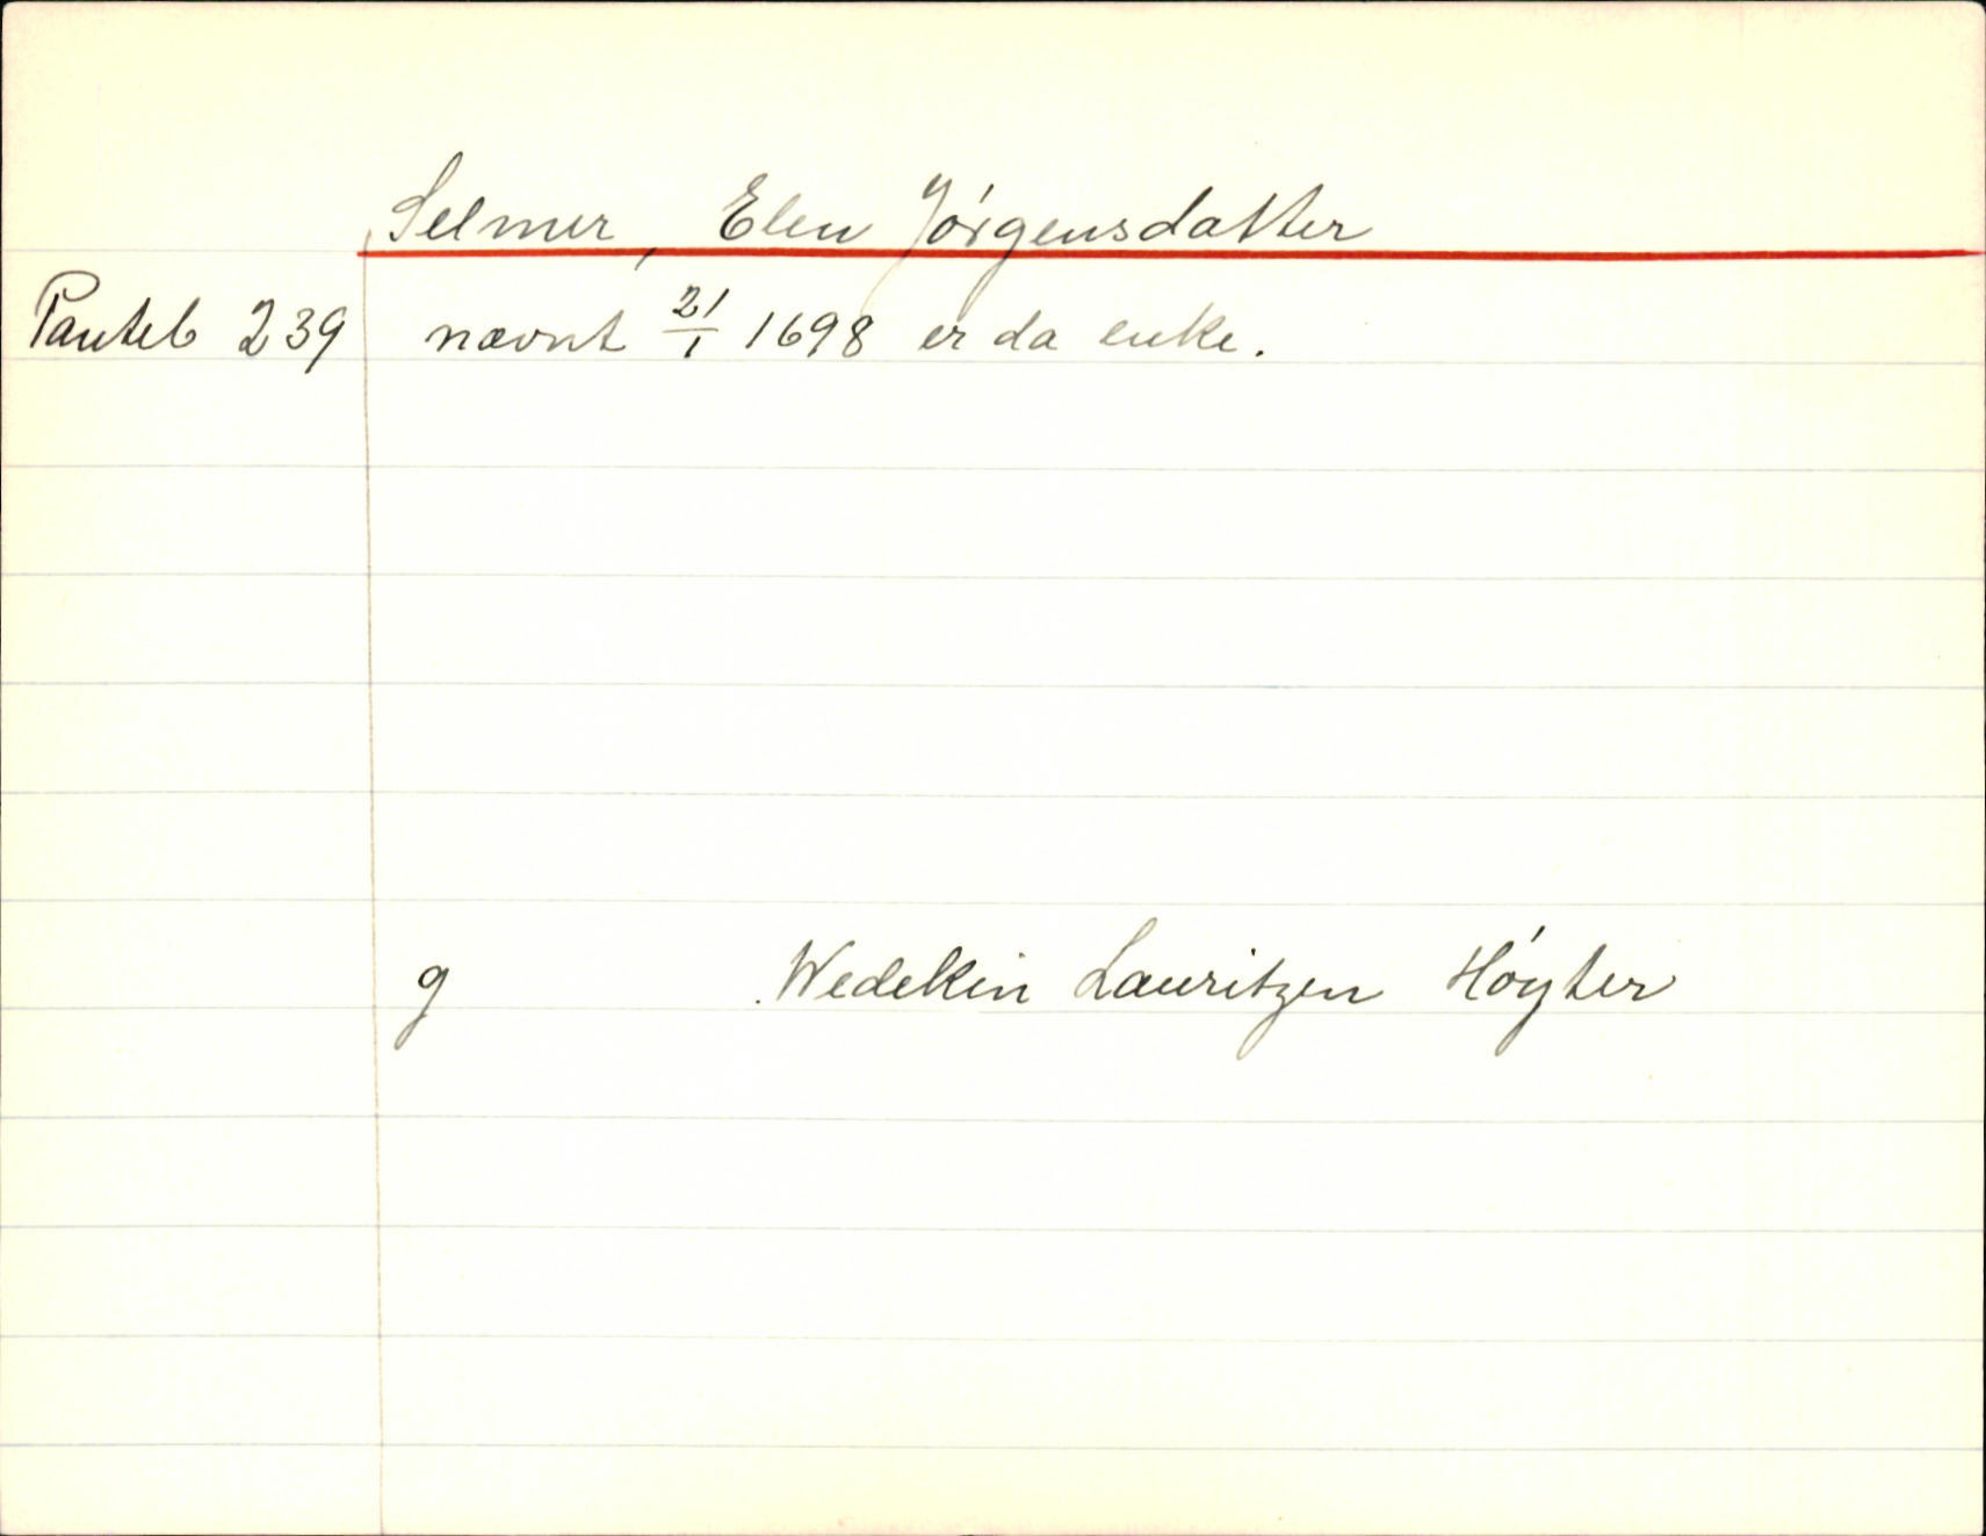 Selmer, Elen Jörgensdatter
Panteb 239 nævnt 21/1 1698 er da enke.
g Wedekin Lauritzen Höyter